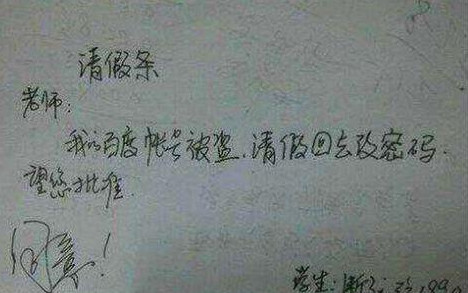 请假条
老师:
我的百度帐号被盗.请假回去改密码.
望您批准.
同意!
学生: